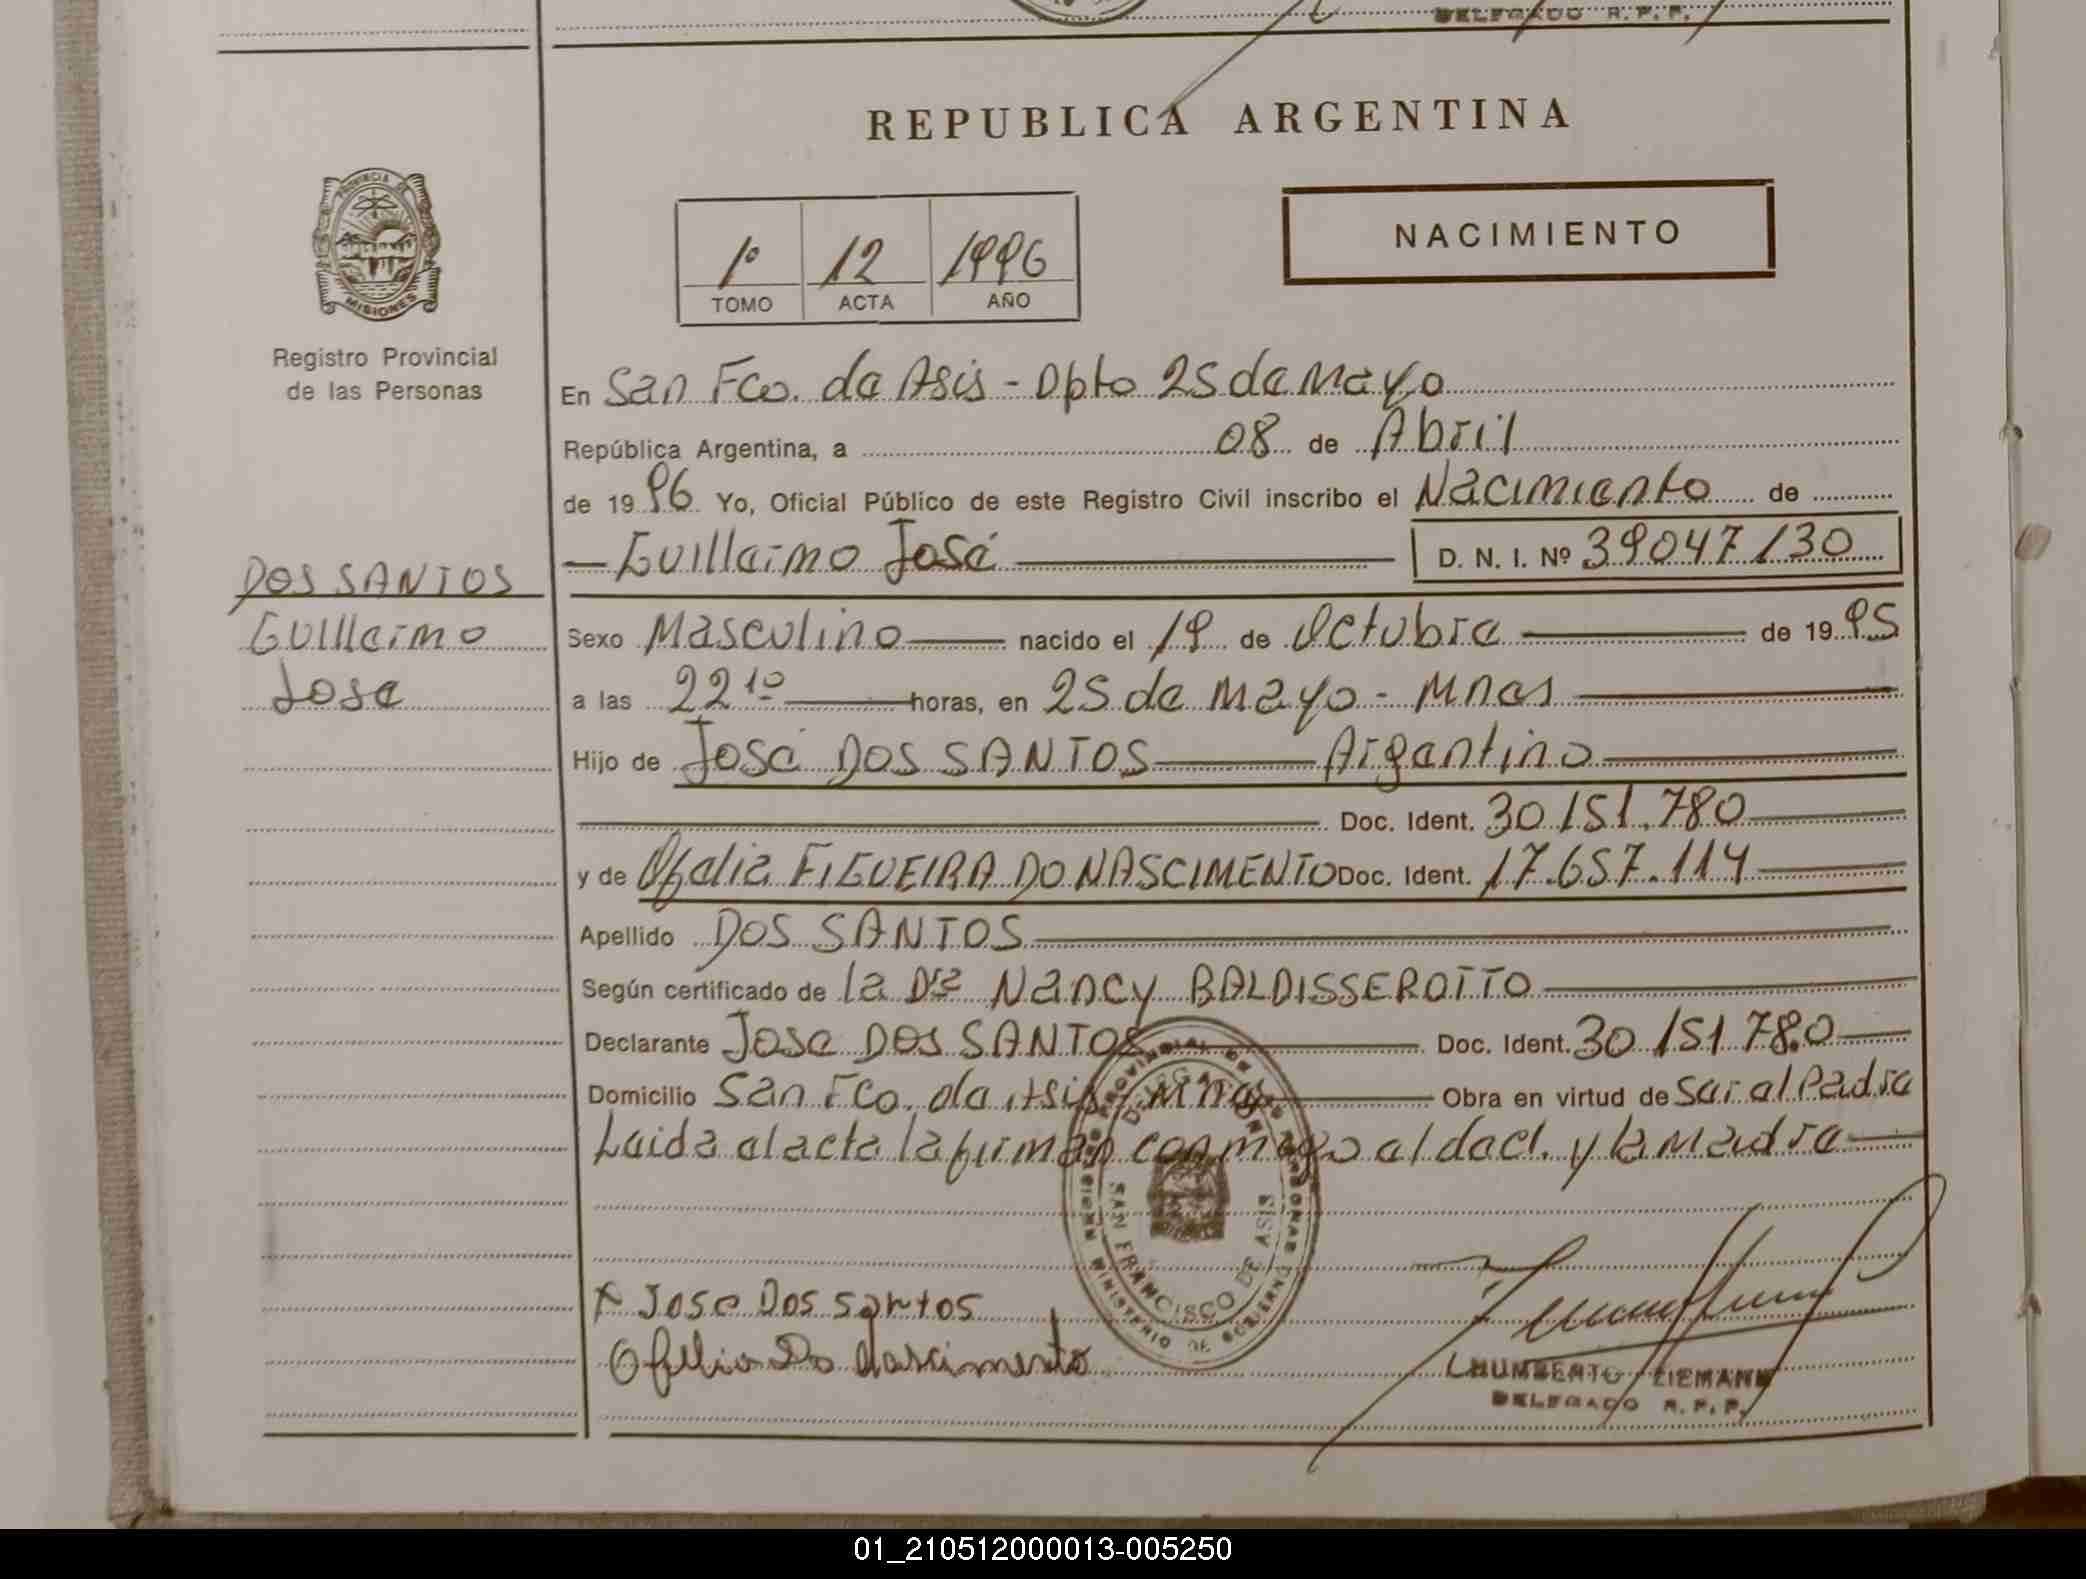 DELEGADO R.P.P.
REPUBLICA ARGENTINA
PROVINCIA DE
MISIONES
Registro Provincial
de las Personas
1º 12 1996
TOMO ACTA AÑO
NACIMIENTO
En San Fco. de Asis - Dpto 25 de Mayo
República Argentina, a 08 de Abril
de 1996 Yo, Oficial Público de este Registro Civil inscribo el Nacimiento de
— Guillermo José — D. N. I. Nº 39047130
DOS SANTOS
Guillermo
Jose
Sexo Masculino — nacido el 19 de Octubre — de 1995
a las 22 10 — horas, en 25 de Mayo - Mnes
Hijo de José DOS SANTOS — Argentino
Doc. Ident. 30151.780
y de Ofelia FIGUEIRA DO NASCIMENTO Doc. Ident. 17.657.114
Apellido DOS SANTOS
Según certificado de la Dra Nancy BALDISSEROTTO
Declarante Jose DOS SANTOS Doc. Ident. 30 151 780
Domicilio San Fco. de Asis, Mnes Obra en virtud de Ser el Padre
Leida el acta la firman conmigo el decl. y la Madre
SAN FRANCISCO DE ASIS
MINISTERIO DE GOBIERNO
x Jose Dos santos
Ofelia Do Nascimento
HUMBERTO ZIEMANN
DELEGADO R.P.P.
01_210512000013-005250